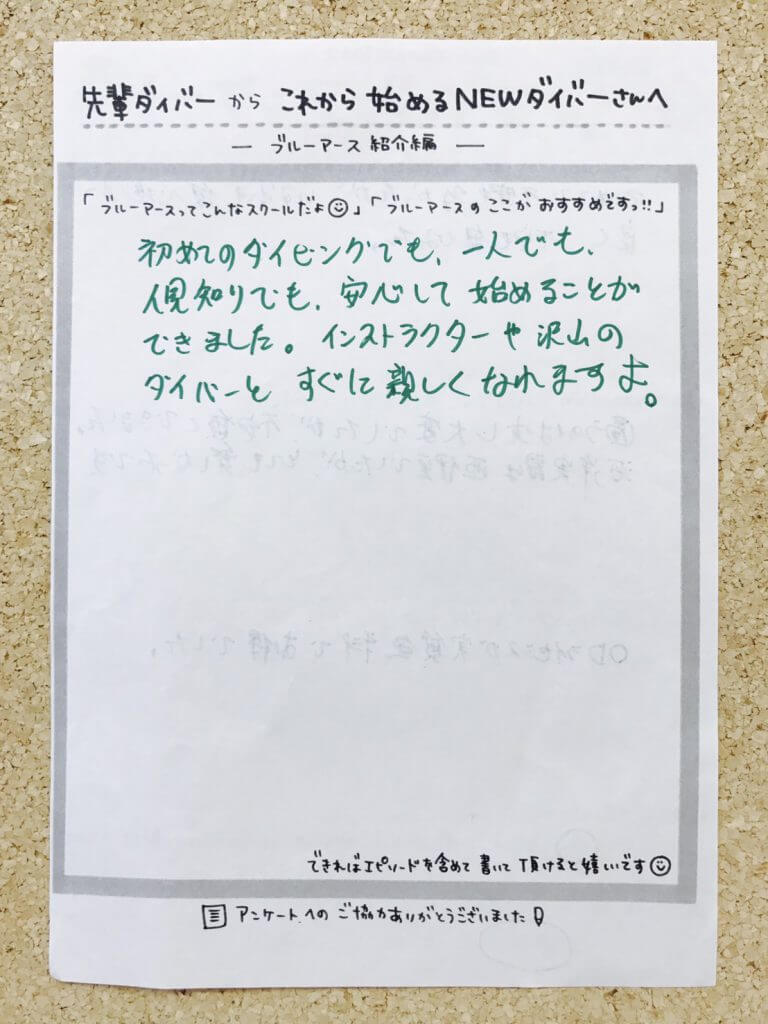 先輩ダイバーから これから始めるNEWダイバーさんへ
— ブルーアース 紹介編 —
「ブルーアースってこんなスクールだよ☺」「ブルーアースの ここが おすすめですっ!!」
初めてのダイビングでも、一人でも、
人見知りでも、安心して 始めることが
できました。インストラクターや沢山の
ダイバーと すぐに親しくなれますよ。
できればエピソードを含めて 書いて 頂けると 嬉しいです☺
アンケートへの ご協力ありがとうございました